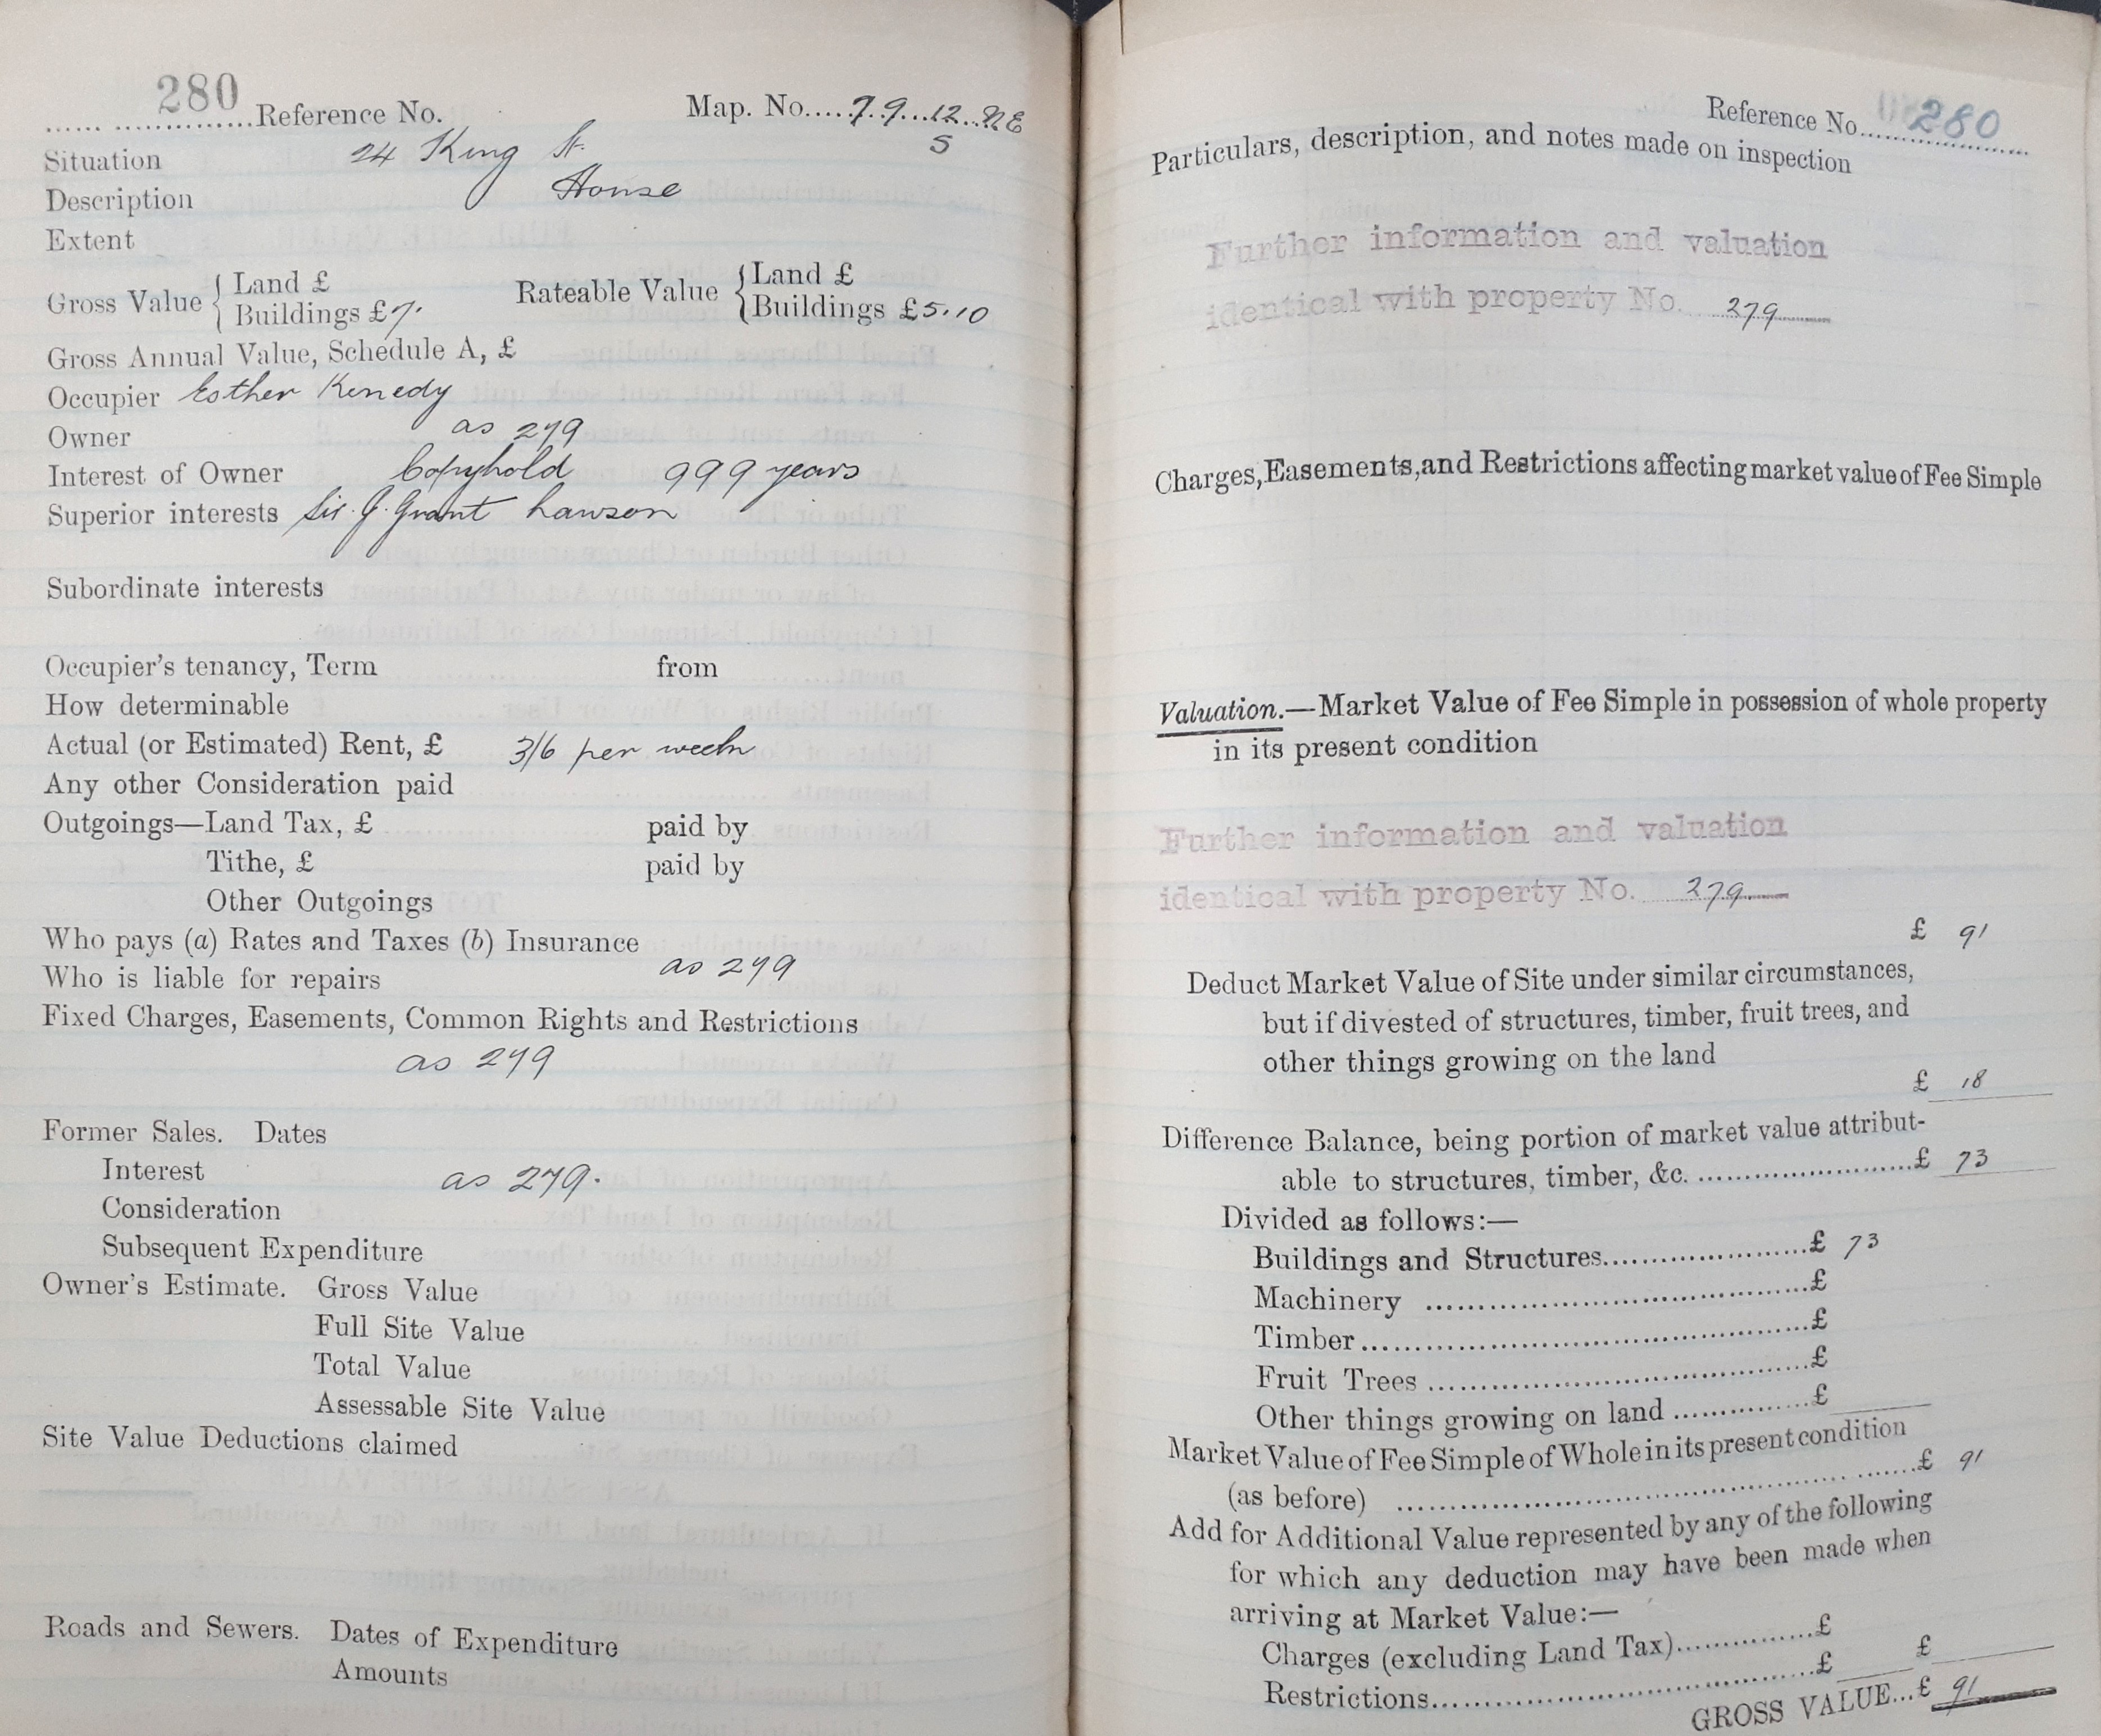 280 Reference No. Map. No.....79...12..NE
5
Situation 24 King St.
Description House
Extent
Gross Value { Land £ Rateable Value { Land £
Buildings £7. Buildings £5.10
Gross Annual Value, Schedule A, £
Occupier Esther Kenedy
Owner as 279
Interest of Owner Copyhold 999 years
Superior interests Sir. J. Grant Lawson
Subordinate interests
Occupier's tenancy, Term from
How determinable
Actual (or Estimated) Rent, £ 3/6 per week
Any other Consideration paid
Outgoings—Land Tax, £ paid by
Tithe, £ paid by
Other Outgoings
Who pays (a) Rates and Taxes (b) Insurance
Who is liable for repairs as 279
Fixed Charges, Easements, Common Rights and Restrictions
as 279
Former Sales. Dates
Interest as 279.
Consideration
Subsequent Expenditure
Owner's Estimate. Gross Value
Full Site Value
Total Value
Assessable Site Value
Site Value Deductions claimed
Roads and Sewers. Dates of Expenditure
Amounts
Reference No. 280
Particulars, description, and notes made on inspection
Further information and valuation
identical with property No. 279
Charges, Easements, and Restrictions affecting market value of Fee Simple
Valuation.—Market Value of Fee Simple in possession of whole property
in its present condition
Further information and valuation
identical with property No. 279
£ 91
Deduct Market Value of Site under similar circumstances,
but if divested of structures, timber, fruit trees, and
other things growing on the land
£ 18
Difference Balance, being portion of market value attribut-
able to structures, timber, &c. ........................£ 73
Divided as follows:—
Buildings and Structures.......................£ 73
Machinery ............................................£
Timber..................................................£
Fruit Trees ...........................................£
Other things growing on land ...............£
Market Value of Fee Simple of Whole in its present condition
(as before) ...................................................£ 91
Add for Additional Value represented by any of the following
for which any deduction may have been made when
arriving at Market Value:—
Charges (excluding Land Tax)...............£
Restrictions.........................................£ £
GROSS VALUE...£ 91